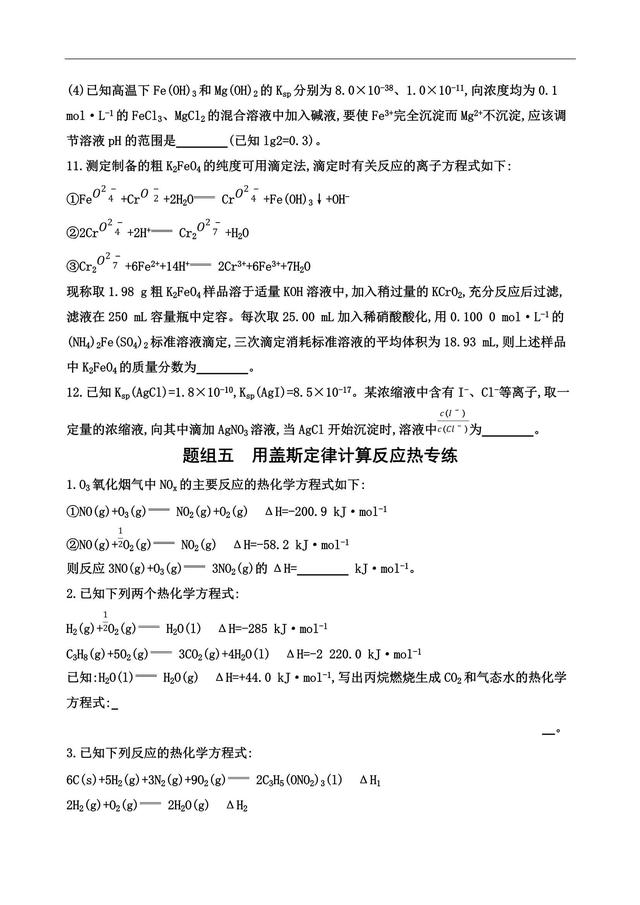 (4)已知高温下Fe(OH)₃和Mg(OH)₂的Kₛₚ分别为8.0×10⁻³⁸、1.0×10⁻¹¹,向浓度均为0.1
mol·L⁻¹的FeCl₃、MgCl₂的混合溶液中加入碱液,要使Fe³⁺完全沉淀而Mg²⁺不沉淀,应该调
节溶液pH的范围是________(已知lg2=0.3)。
11.测定制备的粗K₂FeO₄的纯度可用滴定法,滴定时有关反应的离子方程式如下:
①FeO₄²⁻+CrO₂⁻+2H₂O══CrO₄²⁻+Fe(OH)₃↓+OH⁻
②2CrO₄²⁻+2H⁺══Cr₂O₇²⁻+H₂O
③Cr₂O₇²⁻+6Fe²⁺+14H⁺══2Cr³⁺+6Fe³⁺+7H₂O
现称取1.98 g粗K₂FeO₄样品溶于适量KOH溶液中,加入稍过量的KCrO₂,充分反应后过滤,
滤液在250 mL容量瓶中定容。每次取25.00 mL加入稀硝酸酸化,用0.100 0 mol·L⁻¹的
(NH₄)₂Fe(SO₄)₂标准溶液滴定,三次滴定消耗标准溶液的平均体积为18.93 mL,则上述样品
中K₂FeO₄的质量分数为________。
12.已知Kₛₚ(AgCl)=1.8×10⁻¹⁰,Kₛₚ(AgI)=8.5×10⁻¹⁷。某浓缩液中含有I⁻、Cl⁻等离子,取一
定量的浓缩液,向其中滴加AgNO₃溶液,当AgCl开始沉淀时,溶液中c(I⁻)/c(Cl⁻)为________。
题组五 用盖斯定律计算反应热专练
1.O₃氧化烟气中NOₓ的主要反应的热化学方程式如下:
①NO(g)+O₃(g)══NO₂(g)+O₂(g) ΔH=-200.9 kJ·mol⁻¹
②NO(g)+1/2O₂(g)══NO₂(g) ΔH=-58.2 kJ·mol⁻¹
则反应3NO(g)+O₃(g)══3NO₂(g)的ΔH=________ kJ·mol⁻¹。
2.已知下列两个热化学方程式:
H₂(g)+1/2O₂(g)══H₂O(l) ΔH=-285 kJ·mol⁻¹
C₃H₈(g)+5O₂(g)══3CO₂(g)+4H₂O(l) ΔH=-2 220.0 kJ·mol⁻¹
已知:H₂O(l)══H₂O(g) ΔH=+44.0 kJ·mol⁻¹,写出丙烷燃烧生成CO₂和气态水的热化学
方程式:_
__。
3.已知下列反应的热化学方程式:
6C(s)+5H₂(g)+3N₂(g)+9O₂(g)══2C₃H₅(ONO₂)₃(l) ΔH₁
2H₂(g)+O₂(g)══2H₂O(g) ΔH₂